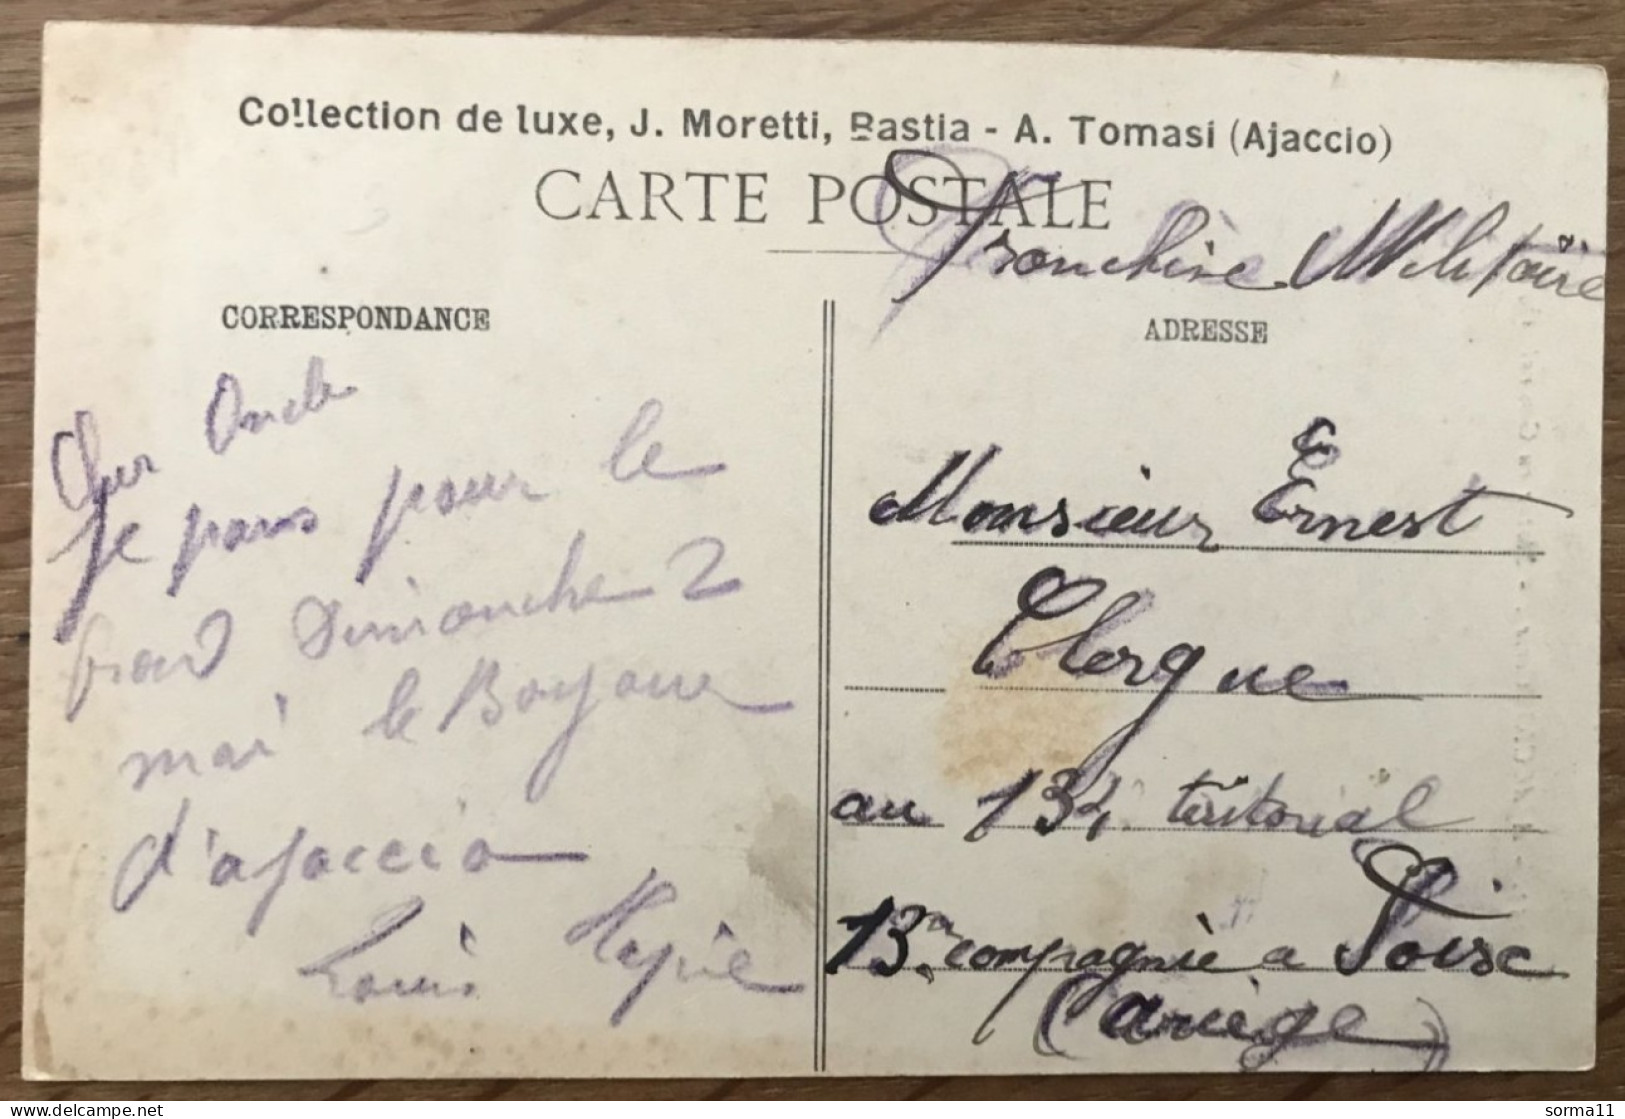 Collection de luxe, J. Moretti, Bastia - A. Tomasi (Ajaccio)
CARTE POSTALE
Franchise Militaire
CORRESPONDANCE
ADRESSE
Cher Oncle
je pars pour le
Dimanche 2
mai le
d'ajaccio
Louis
Monsieur Ernest
Clergue
au 134 territorial
13e compagnie a Foix
(Ariège)
sorma11